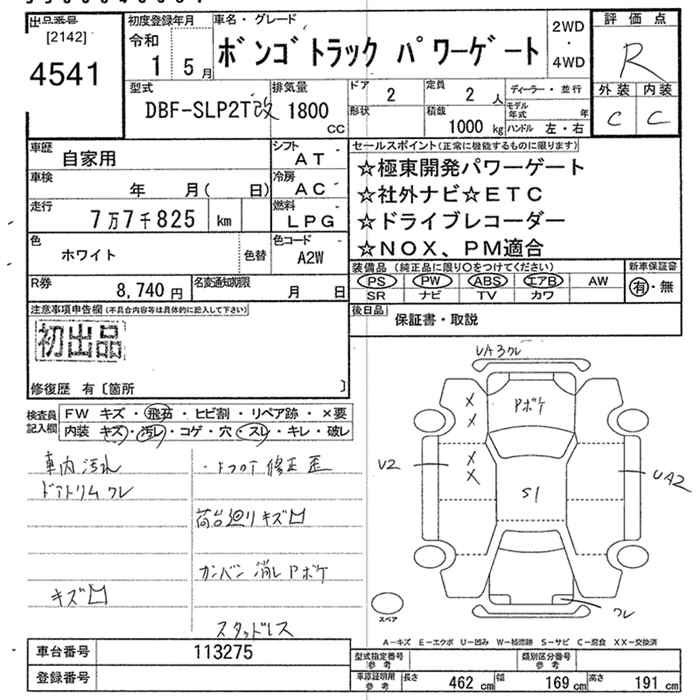 出品番号
[2142]
4541
初度登録年月
令和
1 5月
車名・グレード
ボンゴトラック パワーゲート
2WD
・
4WD
評価点
R
外装 内装
C C
型式
DBF-SLP2T改
排気量
1800
CC
ドア
2
定員
2 人
ディーラー・並行
形状
積載
1000 kg
モデル年式 年
ハンドル 左・右
車歴
自家用
シフト
AT
車検
年 月( 日)
冷房
AC
走行
7万7千825 km
燃料
LPG
色
ホワイト
色替
色コード
A2W
R券
8,740円
名変通知期限
月 日
セールスポイント(正常に機能するものに限ります)
☆極東開発パワーゲート
☆社外ナビ☆ETC
☆ドライブレコーダー
☆NOX、PM適合
装備品 (純正品に限り○をつけてください)
PS PW ABS エアB AW
SR ナビ TV カワ
新車保証書
有・無
後日品
保証書・取説
注意事項申告欄(不具合内容等は具体的に記入して下さい)
初出品
修復歴 有〔箇所 〕
検査員
記入欄
FW キズ・飛石・ヒビ割・リペア跡・×要
内装 キズ・汚レ・コゲ・穴・スレ・キレ・破レ
車内汚れ
ドアトリムクレ
キズ凹
修正歪
荷台廻りキズ凹
カンバン消しアボケ
スタッドレス
UA3クレ
Pボケ
U2
S1
UA2
クレ
スペア
A-キズ E-エクボ U-凹み W-補修跡 S-サビ C-腐食 XX-交換済
車台番号
113275
登録番号
型式指定番号
参考
類別区分番号
参考
車庫証明用
参考
長さ 462 cm 幅 169 cm 高さ 191 cm